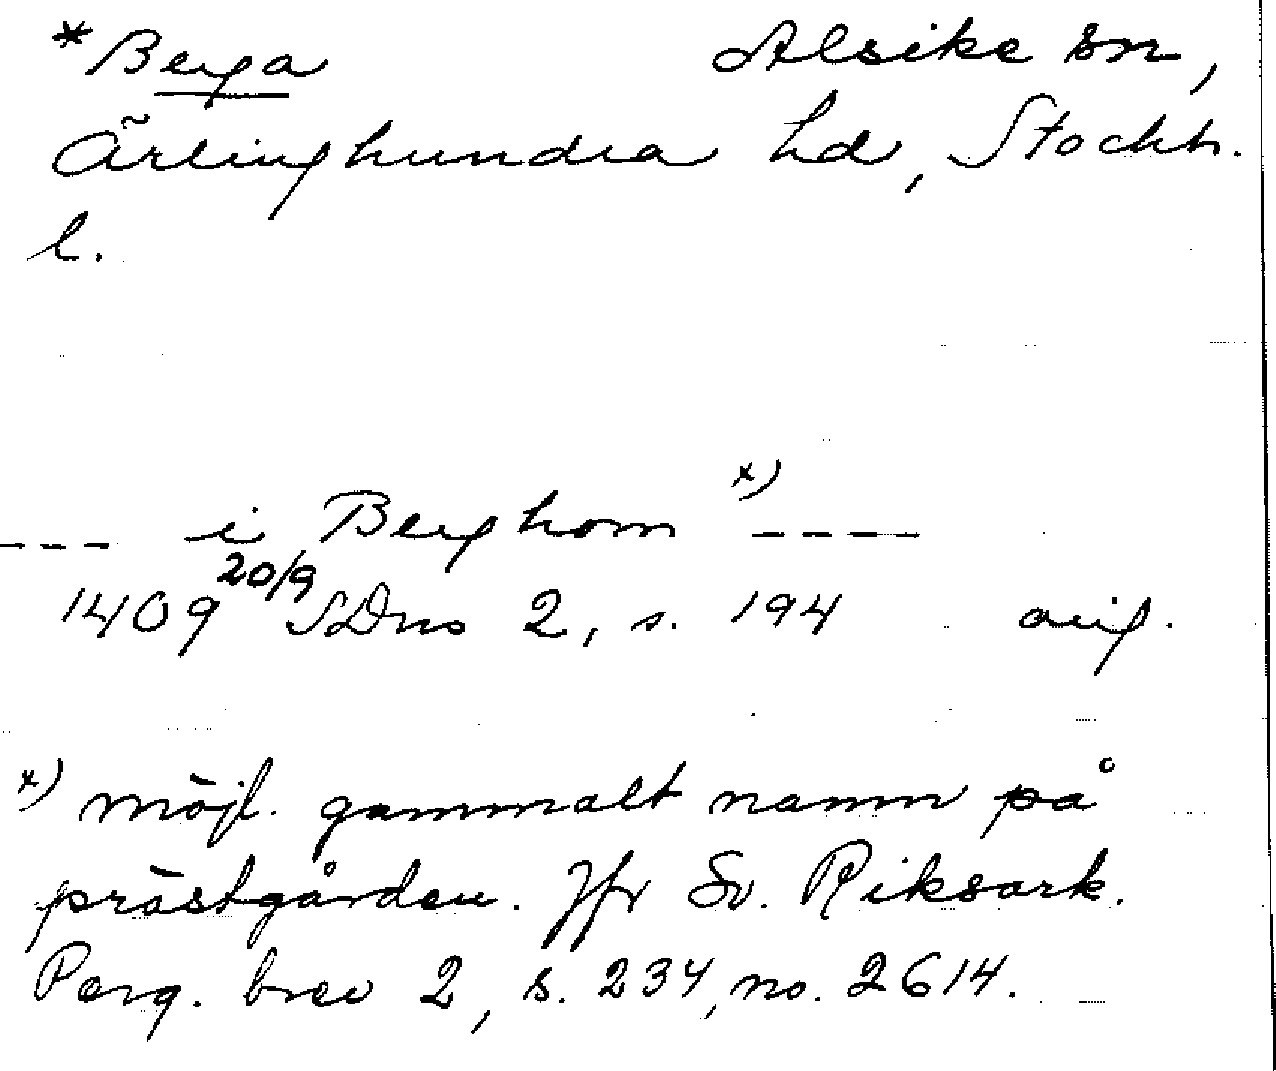 *Berga Alsike sn,
Ärlinghundra hd, Stockh.
l.
--- i Berghom x) ----
1409 20/9 SDns 2, s. 194 orig.
x) möjl. gammalt namn på
prästgården. Jfr Sv. Riksark.
Perg. brev 2, s. 234, no. 2614.